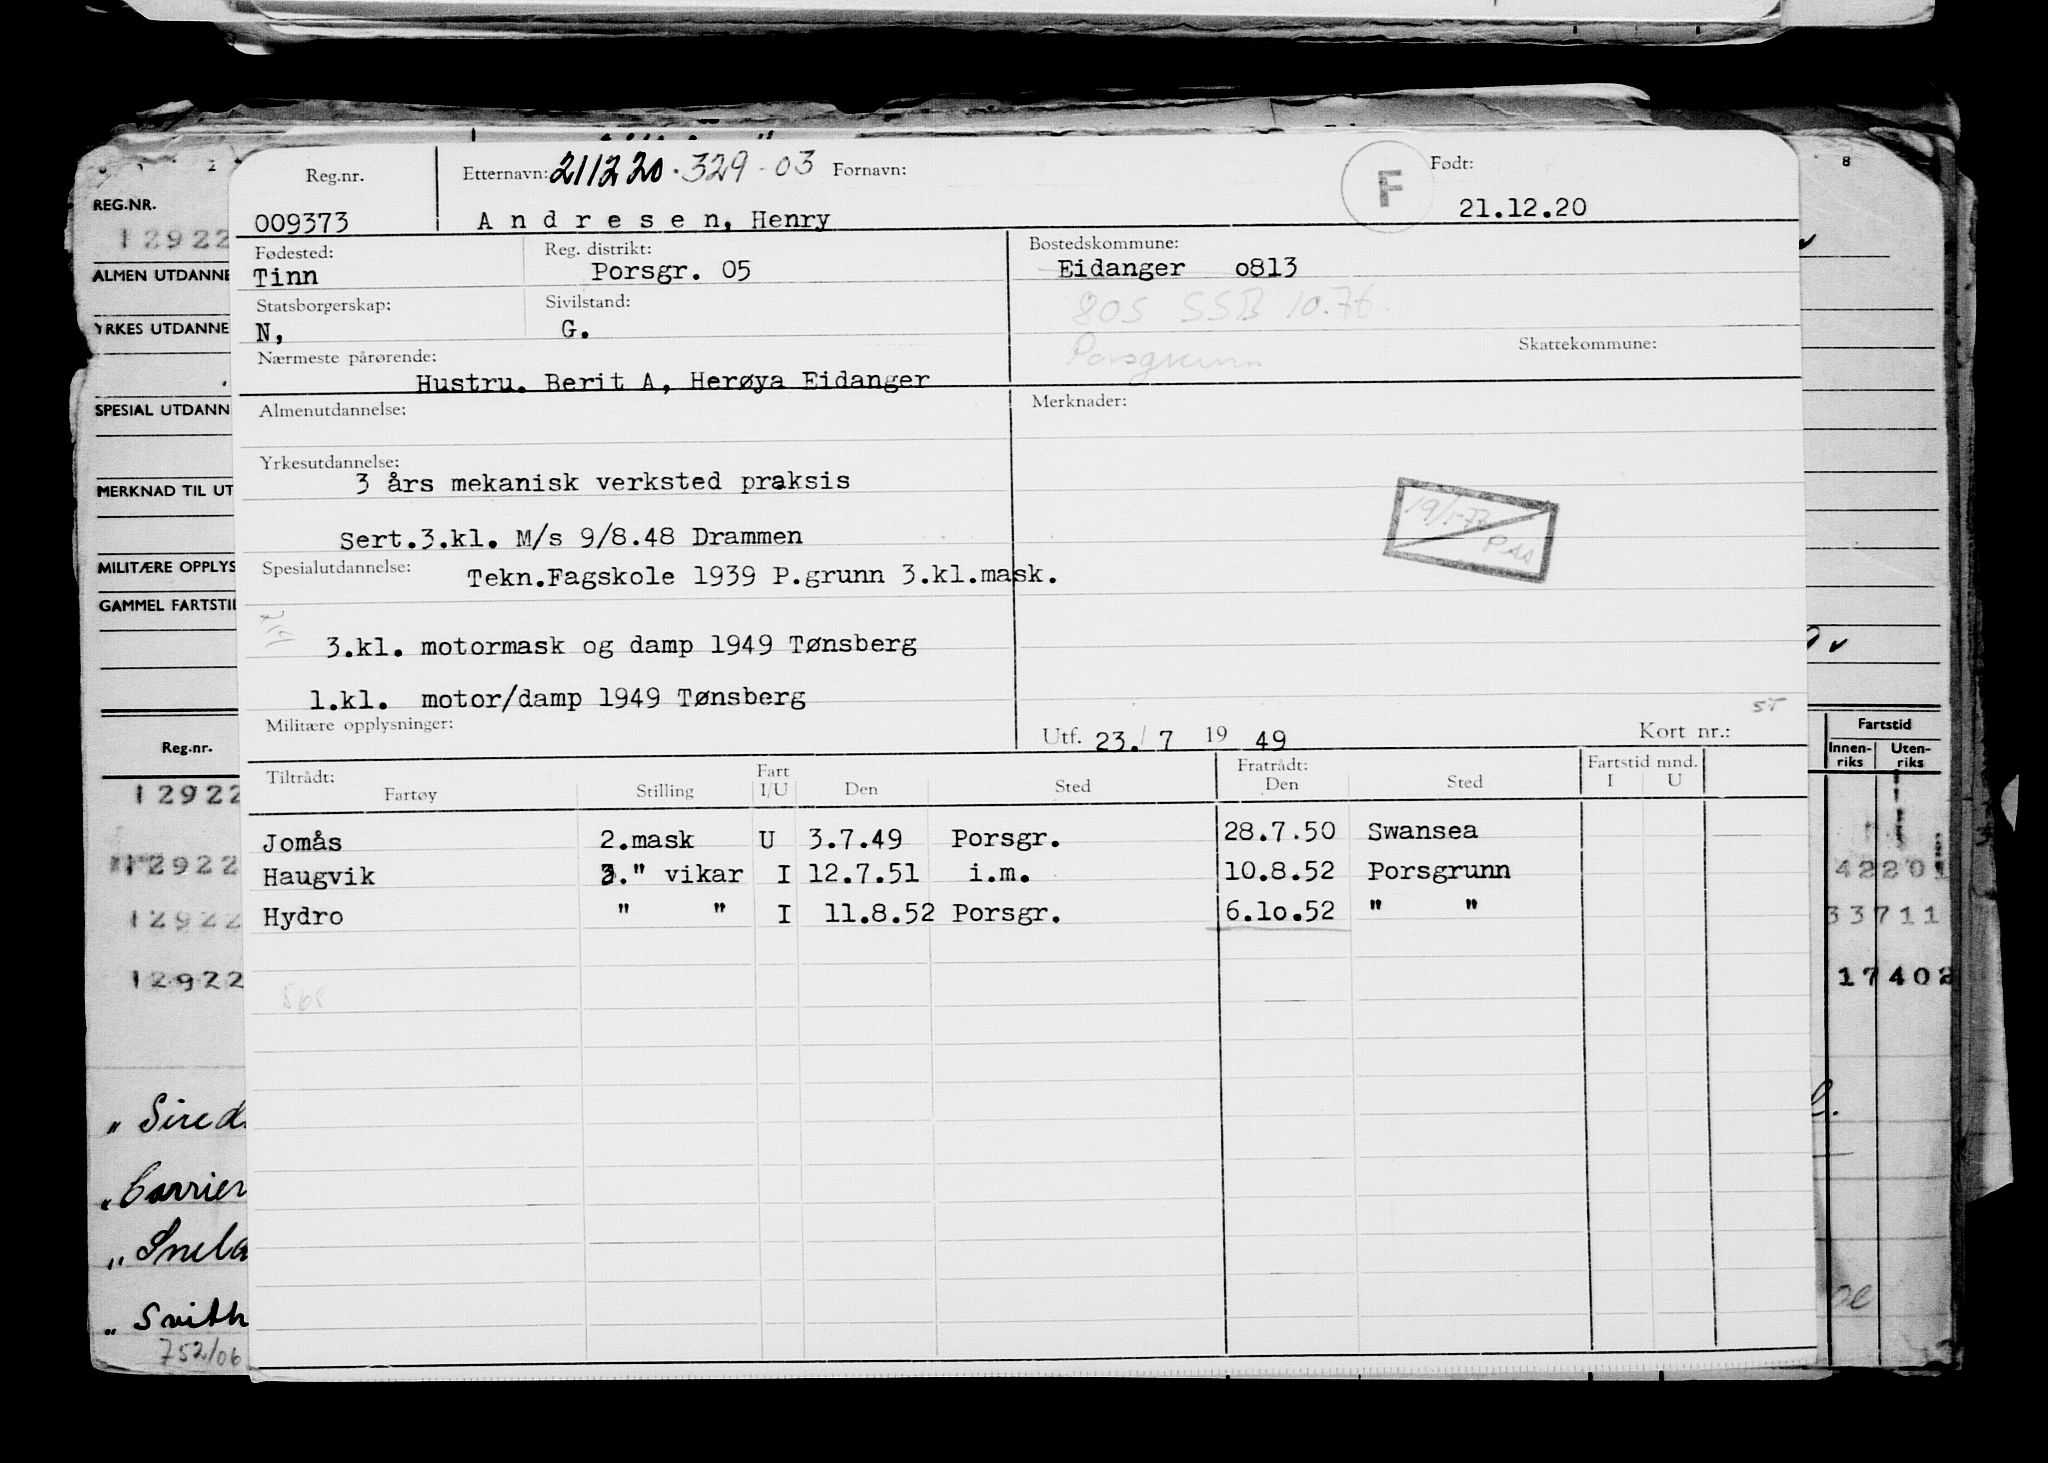 Reg.nr. Etternavn: 211220.329-03 Fornavn: F Født:
009373 Andresen, Henry 21.12.20
Fødested: Reg. distrikt: Bostedskommune:
Tinn Porsgr. 05 Eidanger o813
Statsborgerskap: Sivilstand: 805 SSB 10.76.
N, G.
Nærmeste pårørende: Porsgrunn Skattekommune:
Hustru. Berit A, Herøya Eidanger
Almenutdannelse: Merknader:
Yrkesutdannelse:
3 års mekanisk verksted praksis
Sert.3.kl. M/s 9/8.48 Drammen
Spesialutdannelse: Tekn.Fagskole 1939 P.grunn 3.kl.mask.
3.kl. motormask og damp 1949 Tønsberg
1.kl. motor/damp 1949 Tønsberg
Militære opplysninger: Utf. 23./7 19 49 Kort nr.:
Tiltrådt: Fart Fratrådt: Fartstid mnd.
Fartøy Stilling I/U Den Sted Den Sted I U
Jomås 2.mask U 3.7.49 Porsgr. 28.7.50 Swansea
Haugvik 3." vikar I 12.7.51 i.m. 10.8.52 Porsgrunn
Hydro " " I 11.8.52 Porsgr. 6.1o.52 " "
REG.NR.
12922
ALMEN UTDANNE
YRKES UTDANNE
SPESIAL UTDANN
MERKNAD TIL UT
MILITÆRE OPPLYS
GAMMEL FARTSTI
Reg.nr.
12922
12922
12922
12922
„ Sired
„ Carrier
„ Snela
„ Svith
752/06
8
Fartstid
Innen-riks Uten-riks
42201
33711
17402